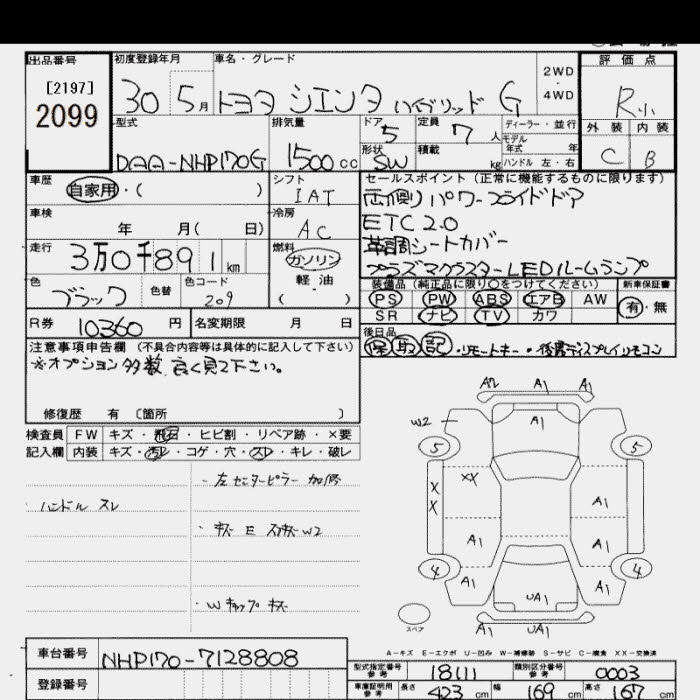 出品番号
[2197]
2099
初度登録年月
30 5月
車名・グレード
トヨタ シエンタ ハイブリッド G
2WD
・
4WD
評価点
R小
外装 内装
C B
型式
DAA-NHP170G
排気量
1500cc
ドア
5
形状
SW
定員
7人
積載
kg
ディーラー・並行
モデル
年式 年
ハンドル 左・右
車歴
自家用・( )
シフト
IAT
車検
年 月( 日)
冷房
AC
走行
3万0千891km
燃料
ガソリン
軽油
( )
色
ブラック
色替
色コード
209
R券
10360円
名変期限 月 日
セールスポイント (正常に機能するものに限ります)
両側パワースライドドア
ETC2.0
革調シートカバー
プラズマクラスターLEDルームランプ
装備品 (純正品に限り〇をつけてください)
PS PW ABS エアB AW
SR ナビ TV カワ
新車保証書
有・無
後日品
保 取 記・リモートキー・後席ディスプレイリモコン
注意事項申告欄 (不具合内容等は具体的に記入して下さい)
※オプション多数、良く見て下さい。
修復歴 有 〔箇所 〕
検査員 FW キズ・飛石・ヒビ割・リペア跡・×要
記入欄 内装 キズ・汚レ・コゲ・穴・スレ・キレ・破レ
ハンドル スレ
・左センターピラー 加修
・キズ E スリキズ W2
・Wキャップ キズ
A2 A1 A1
A1
W2
5 5
XX
X
X
A1
A1 A1
4 4
A1 A1
UA1
A1 UA1
スペア
A-キズ E-エクボ U-凹み W-補修跡 S-サビ C-腐食 XX-交換済
車台番号
NHP170-7128808
登録番号
型式指定番号
参考
18111
類別区分番号
参考
0003
車庫証明用
参考
長さ 423cm 幅 169cm 高さ 167cm